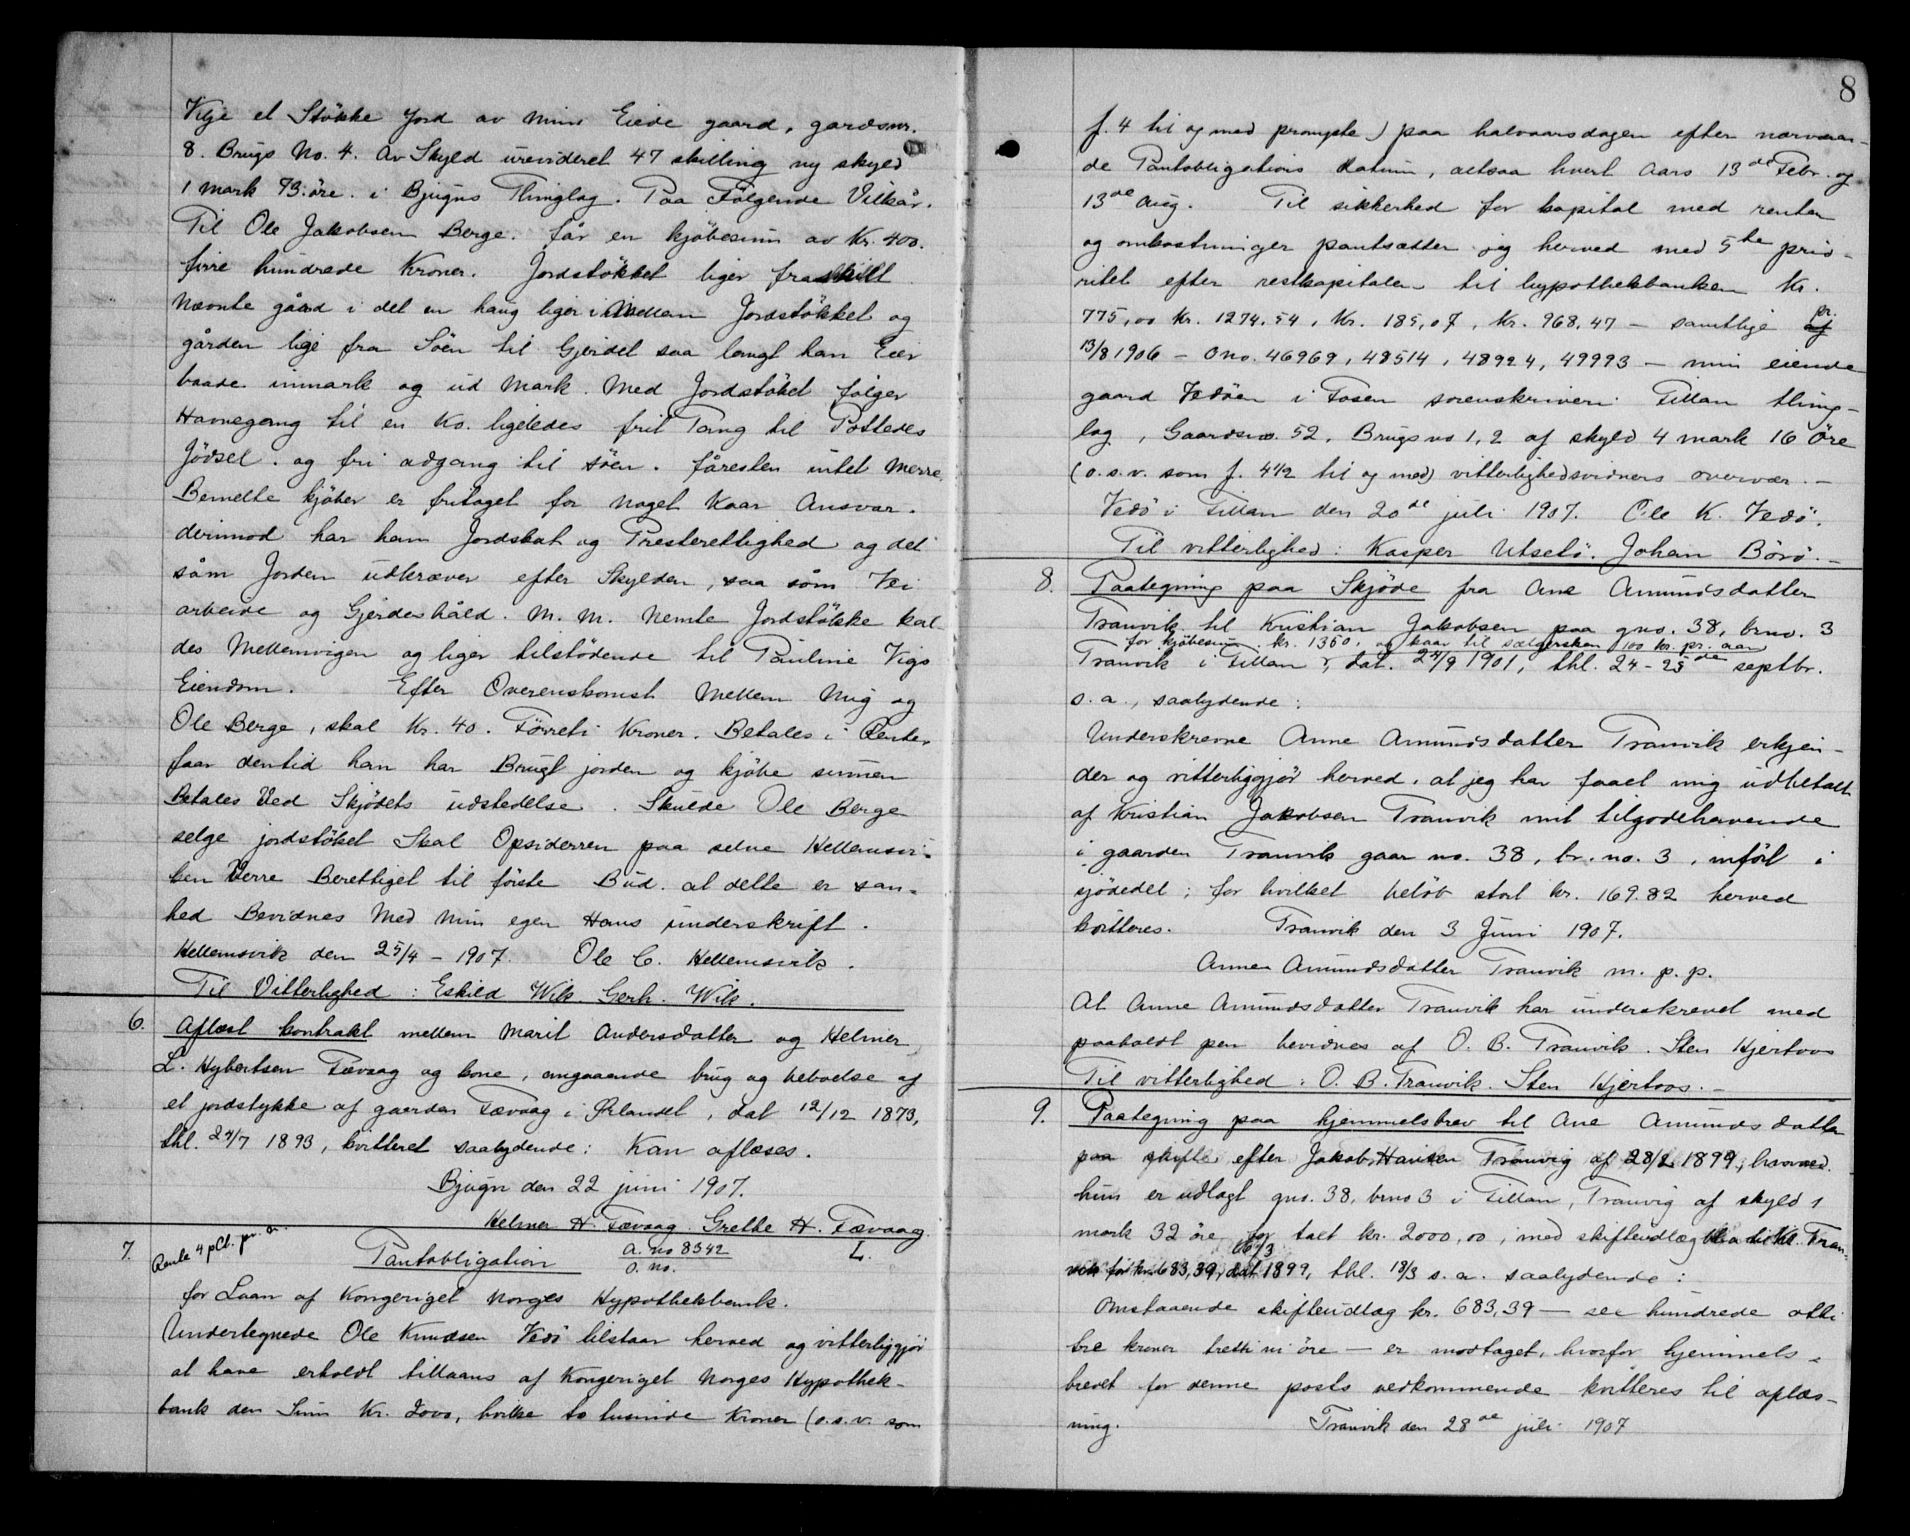 Vige et Stökke Jord av mins Eiede gaard, gardsnr.
8. Brugs No. 4. Av Skyld urevideret 47 skilling ny skyld
1 mark 73. öre. i Bjugns Thinglag. Paa Fölgende Vilkår.
Til Ole Jakobsen Berge. får en kjöbesum av Kr. 400.
firre hundrede Kroner. Jordstökket liger fraskilt
Nævnte gård i det en haug liger i Mellem Jordstökket og
gården lige fra Söen til Gjerdet saa langt han Eier
baade inmark og ud Mark. Med Jordstöket fölger
Havnegang til en Ko. ligeledes frit Tang til Pottedes
Jödsel. og fri adgang til söen. fåresten intet Merre.
Bemelte kjöber er fritaget for noget Kaar Ansvar.
derimod har ham Jordskat og Presterettighed og det
såm Jorden udkræver efter Skylden, saa såm Vei
arbeide og Gjerdeshåld. M. M. Nemte Jordstökke kal-
des Mellemvigen og liger tilstödende til Pauline Vigs
Eiendom. Efter Overenskomst Mellem Mig og
Ole Berge, skal Kr. 40. Förreti Kroner. Betales i Renter
faar dentid han har Brugt jorden og kjöbe summen
Betales Ved Skjödets udstedelse. Skulde Ole Berge
selge jordstöket Skal Opsideren paa selve Hellemsvi-
ken Verre Berettiget til förste Bud. at dette er san-
hed Bevidnes Med Min egen Hans underskrift.
Hellemsvik den 25/4 - 1907. Ole C. Hellemsvik.
Til Vitterlighed: Eskild Wik. Gerh. Wik.
6. Aflæst kontrakt mellem Marit Andersdatter og Helmer
L. Hybertsen Fævaag og kone, angaaende brug og beboelse af
et jordstykke af gaarden Fævaag i Ørlandet, dat 12/12 1873,
thl. 24/7 1893, kvitteret saalydende: Kan aflæses.
Bjugn den 22 juni 1907.
Helmer H. Fævaag. Grethe H. Fævaag.
7. Rente 4 pCt. pr. a. Pantobligation a. no 8342 L.
o. no.
for Laan af Kongeriget Norges Hypothekbank.
Undertegnede Ole Knudsen Vedö tilstaar herved og vitterliggjör
at have erholdt tillaans af Kongeriget Norges Hypothek-
bank den Sum Kr. 2000, hvilke to tusinde Kroner (o.s.v. som
8
f. 4 til og med prompte) paa halvaarsdagen efter nærværen-
de Pantobligations datum, altsaa hvert Aars 13de Febr. og
13de Aug. Til sikkerhed for kapital med renter
og omkostninger pantsætter jeg herved med 5te prio-
ritet efter restkapitalen til hypothekbanken Kr.
775,00 Kr. 1274.54, Kr. 185,07, Kr. 968,47 - samtlige af pr.
13/8 1906 - Ono. 46969, 48514, 48924, 49993 - min eiende
gaard Vedöen i Fosen sorenskriveri Fillan thing-
lag, Gaardsno. 52, Brugsno 1, 2 af skyld 4 mark 16 Öre
(o.s.v. som f. 4 1/2 til og med) vitterlighedsvidners overvær. -
Vedö i Fillan den 20de juli 1907. Ole K. Vedö.
Til vitterlighed: Kasper Utsetö. Johan Börö. -
8. Paategning paa Skjöde fra Ane Amundsdatter
Tranvik til Kristian Jakobsen paa gno. 38, brno. 3
for kjöbesum kr. 1360. og kaar til sælgersken 100 kr. pr. aar
Tranvik i Fillan, dat. 24/9 1901, thl. 24-25de septbr.
s. a., saalydende:
Underskrevne Anne Amundsdatter Tranvik erkjen-
der og vitterliggjör herved, at jeg har faaet mig udbetalt
af Kristian Jakobsen Tranvik mit tilgodehavende
i gaarden Tranvik gaar no. 38, br. no. 3, inført i
sjödedet; for hvilket belöb stort kr. 169.82 herved
kvitteres. Tranvik den 3 Juni 1907.
Anne Amundsdatter Tranvik m. p. p.
At Anne Amundsdatter Tranvik har underskrevet med
paaholdt pen bevidnes af O. B. Tranvik. Sten Hjertoos
Til vitterlighed: O. B. Tranvik. Sten Hjertoos. -
9. Paategning paa hjemmelsbrev til Ane Amundsdatter
paa skifte efter Jakob Hansen Tranvig af 28/2 1899, hvorved
hun er udlagt gno. 38, brno 3 i Fillan, Tranvig af skyld 1
mark 32 öre for talt kr. 2000,00, med skifteudlæg til Tran-
vik for kr. 683,39, dat 16/3 1899, thl. 18/3 s.a. saalydende:
Omstaaende skifteudlæg kr. 683,39 - sex hundrede otti
tre kroner tretti ni öre - er modtaget, hvorfor hjemmels-
brevet for denne posts vedkommende kvitteres til aflæs-
ning. Tranvik den 28de juli 1907